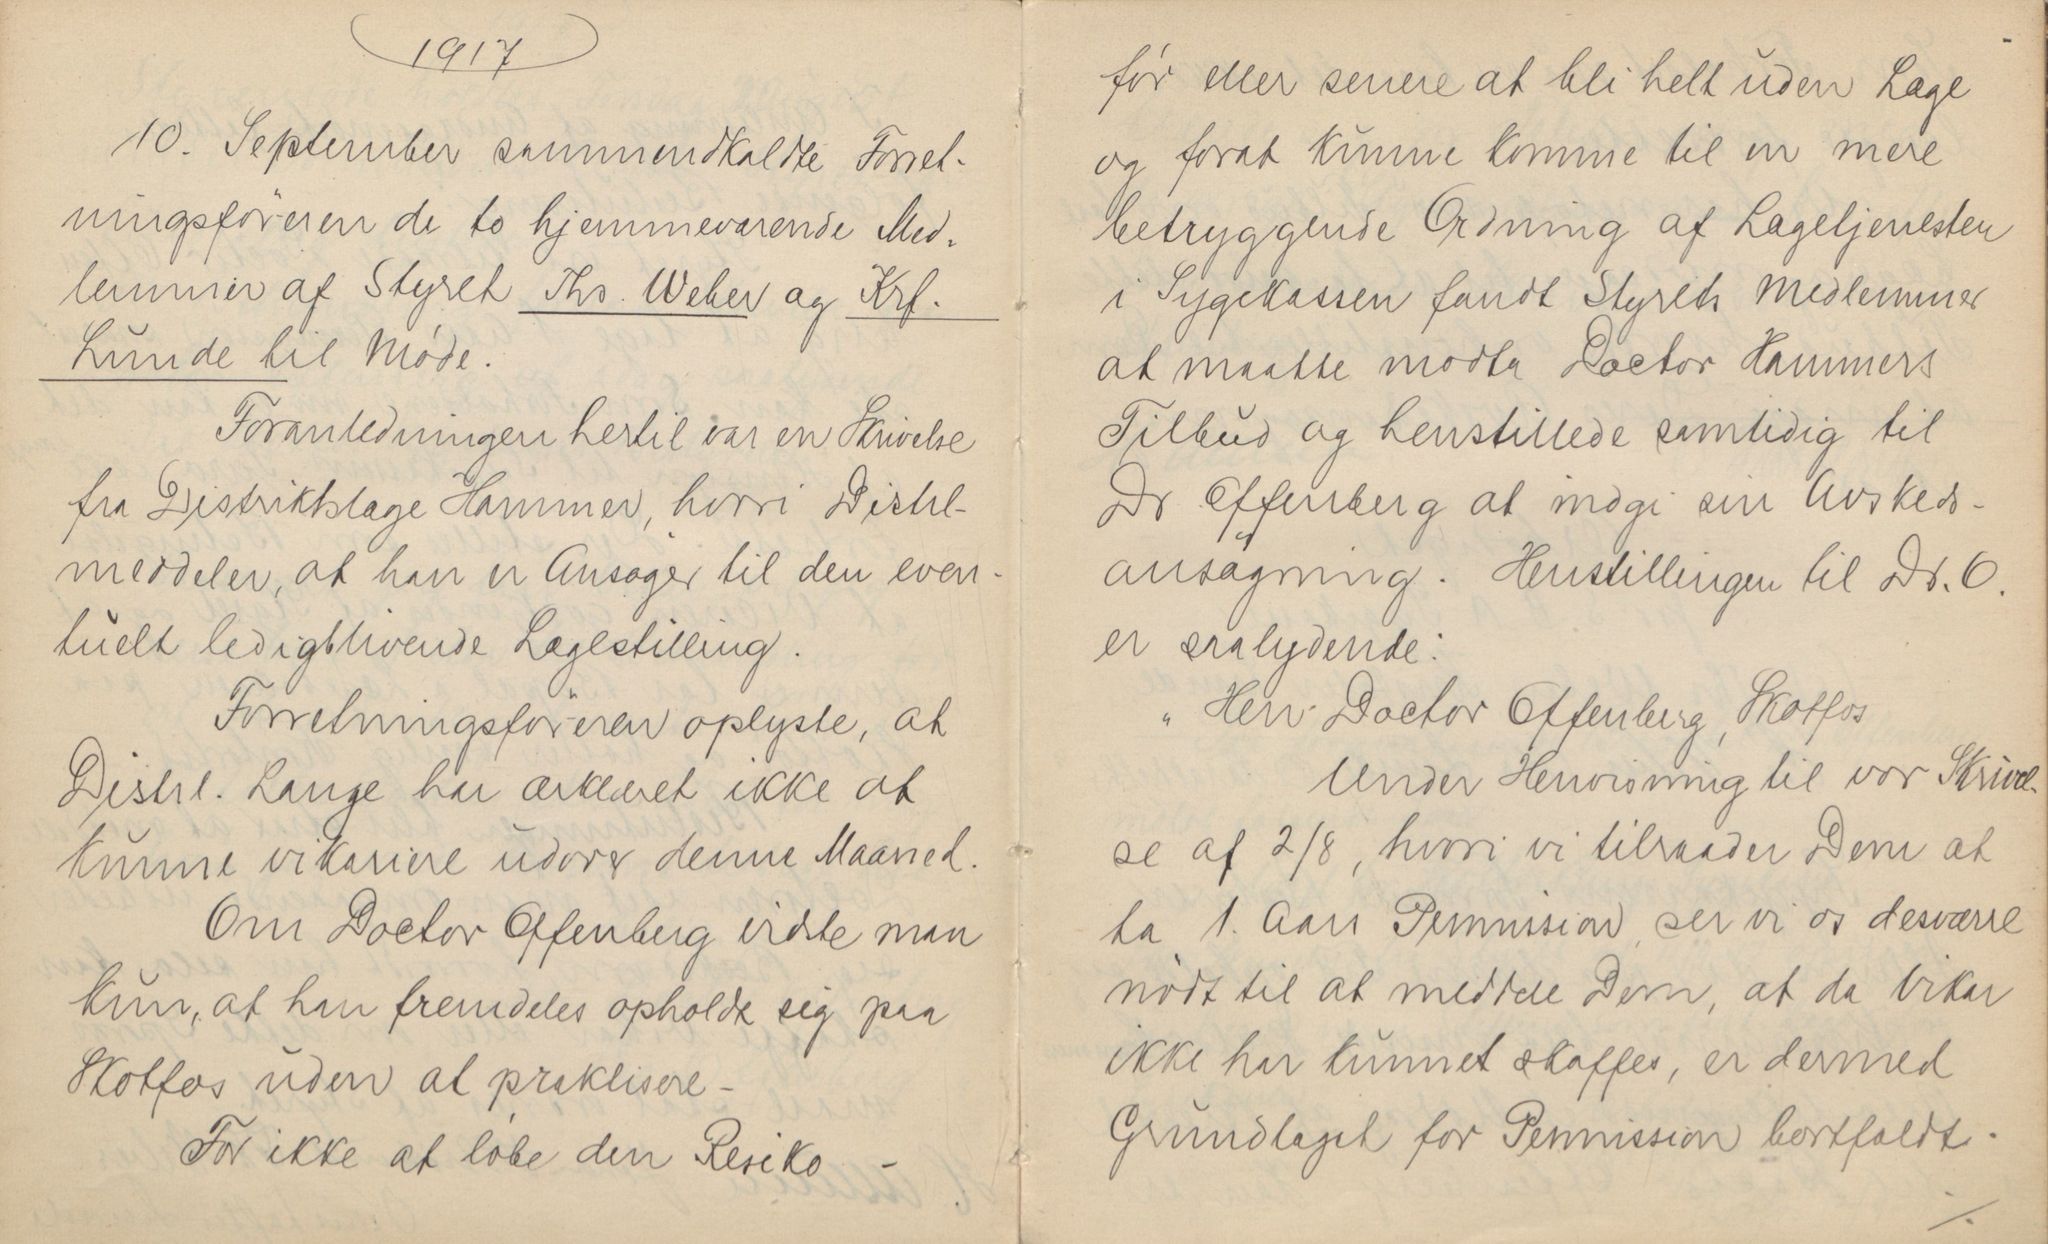 1917
10. September sammendkaldte Forret-
ningsføreren de to hjemmeværende Med-
lemmer af Styret Ths. Weber og Krf.
Lunde til Møde.
Foranledningen hertil var en Skrivelse
fra Distriktslæge Hammer, hvori Distrl-
meddeler, at han er Ansøger til den even-
tuelt ledigblivende Lægestilling.
Forretningsføreren oplyste, at
Distrl. Lange har erklæret ikke at
kunne vikariere udover denne Maaned.
Om Doctor Offenberg vidste man
kun, at han fremdeles opholdt sig paa
Skotfos uden at praktisere -
For ikke at løbe den Resiko -
før eller senere at bli helt uden Læge
og forat kunne komme til en mere
betryggende Ordning af Lægetjenesten
i Sygekassen fandt Styrets Medlemmer
at maatte modta Doctor Hammers
Tilbud og henstillede samtidig til
Dr Offenberg at indgi sin Avskeds-
ansøgning. Henstillingen til Dr. O.
er saalydende:
" Herr Doctor Offenberg, Skotfos
Under Henvisning til vor Skrivel-
se af 2/8, hvori vi tilraader Dem at
ta 1. Aars Permission, ser vi os desværre
nødt til at meddele Dem, at da Vikar
ikke har kunnet skaffes, er dermed
Grundlaget for Permission bortfaldt.
./.